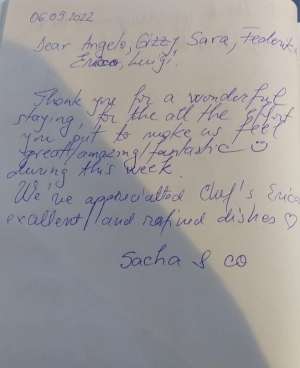 06.09.2022
Dear Angelo, Gizzy, Sara, Federika
Erico, Luigi.
Thank you for a wonderful
staying, for the all the effort
you put to make us feel
great/amazing/fantastic ☺
during this week.
We've appreciatted Chef's Erico
excellent/and rafined dishes ♡
Sacha & co